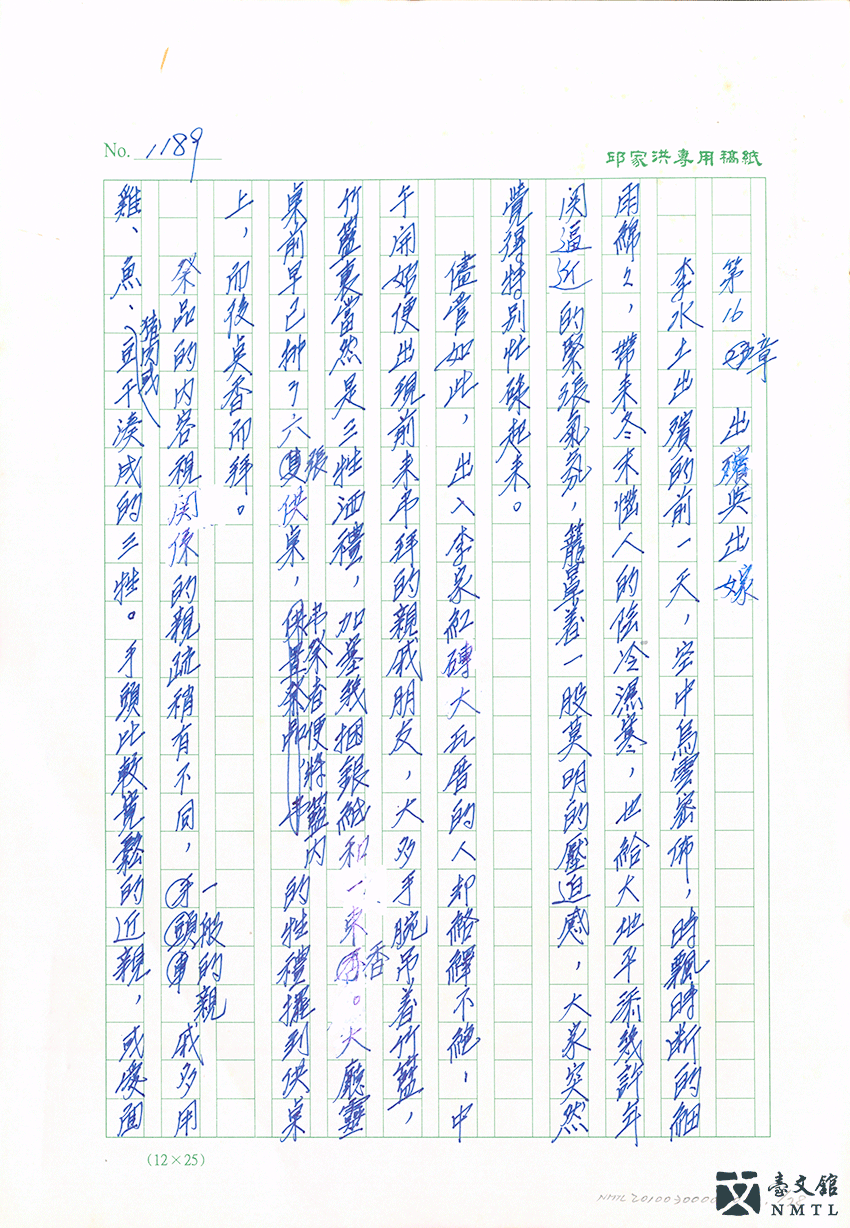 No. 1189
邱家洪專用稿紙
第16章 出殯與出嫁
李水土出殯的前一天，空中烏雲密佈，時飄時斷的細
雨綿々，帶來冬末惱人的陰冷濕寒，也給大地平添幾許年
関逼近的緊張氣氛，籠罩着一股莫明的壓迫感，大家突然
覺得特別忙碌起來。
儘管如此，出入李家紅磚大瓦厝的人却絡繹不絕，中
午開始便出現前來弔拜的親戚朋友，大多手腕吊着竹籃，
竹籃裏當然是三牲酒禮，加墓幾捆銀紙和一束香。大廳靈
桌前早已排了六張供桌，弔祭者便將籃內的牲禮擺到供桌
上，而後点香而拜。
祭品的內容視関係的親疏稍有不同，一般的親戚多用
雞、魚、豬肉或豆干湊成的三牲。手頭比較寬鬆的近親，或愛面
(12×25)
臺文館
NMTL